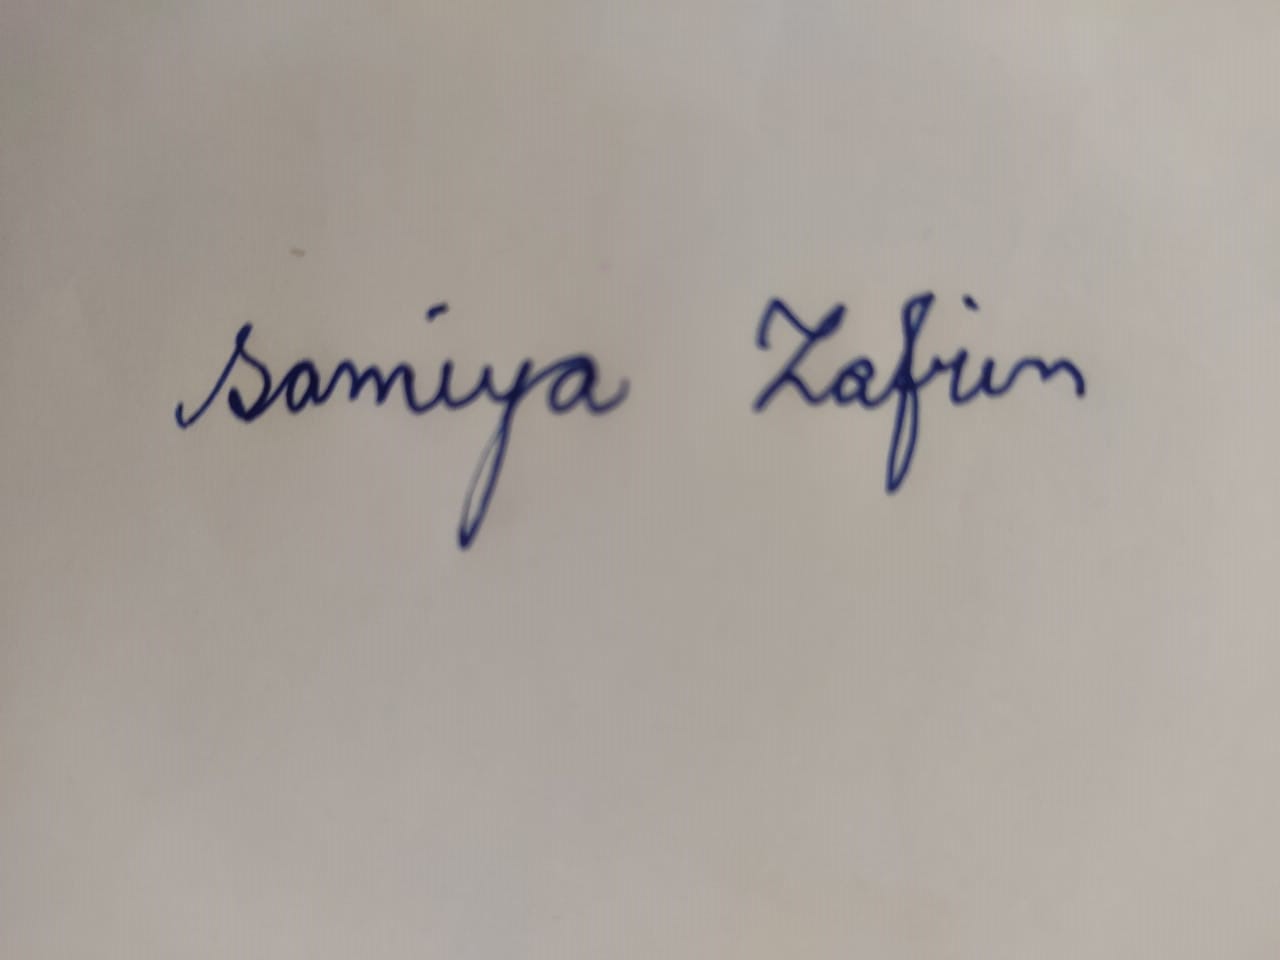 Samiya Zafrin